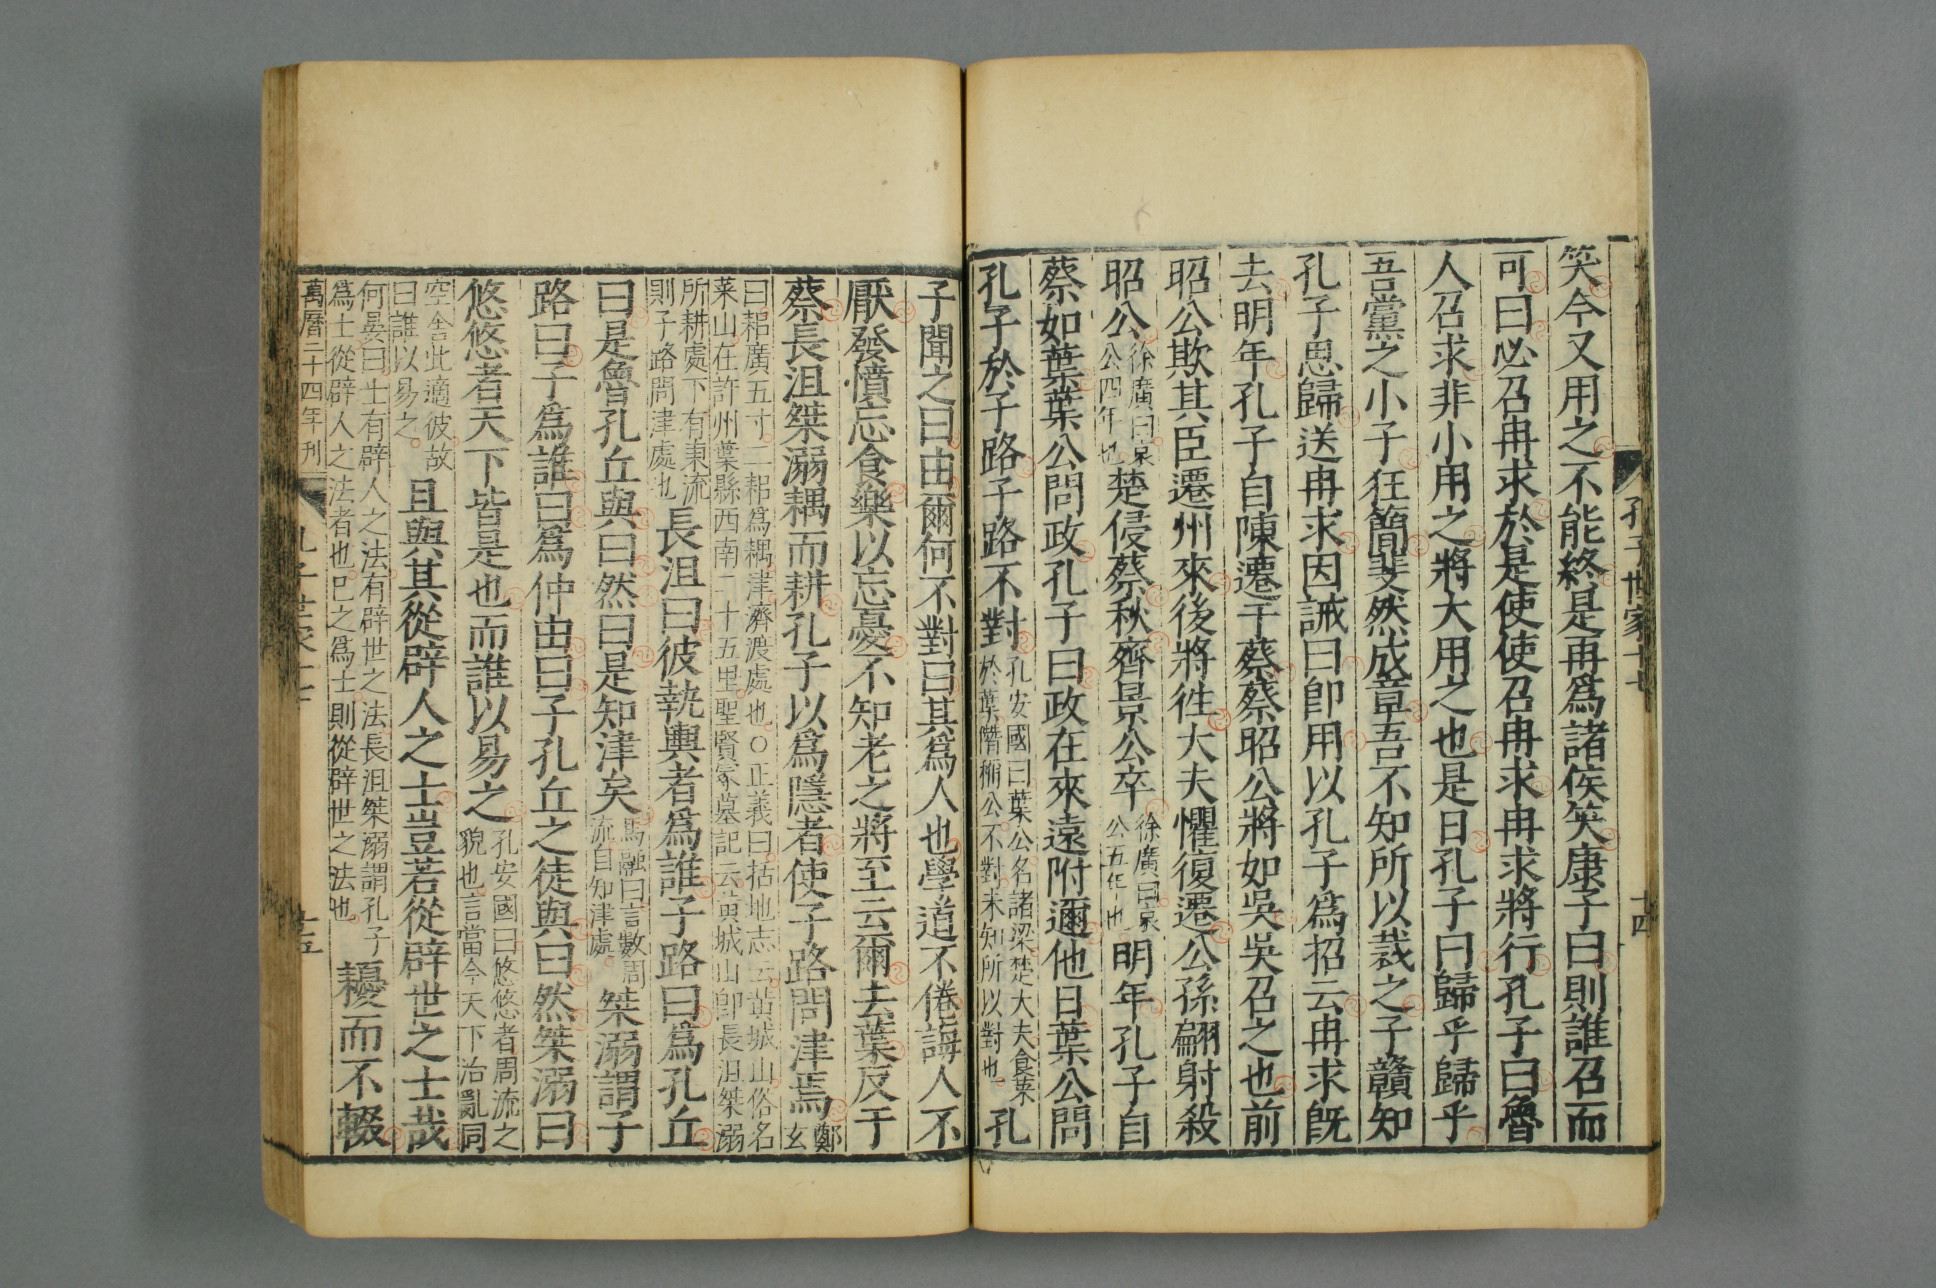 笑今又用之不能終是再爲諸侯笑康子曰則誰召而
可曰必召冉求於是使使召冉求冉求將行孔子曰魯
人召求非小用之將大用之也是日孔子曰歸乎歸乎
吾黨之小子狂簡斐然成章吾不知所以裁之子贛知
孔子思歸送冉求因誡曰卽用以孔子爲招云冉求旣
去明年孔子自陳遷于蔡蔡昭公將如吳吳召之也前
昭公欺其臣遷州來後將徃大夫懼復遷公孫翩射殺
昭公徐廣曰哀公四年也楚侵蔡秋齊景公卒徐廣曰哀公五年也明年孔子自
蔡如葉葉公問政孔子曰政在來遠附邇他日葉公問
孔子於子路子路不對孔安國曰葉公名諸梁楚大夫食菜於葉僭稱公不對未知所以對也孔
孔子世家十七
十四
子聞之曰由爾何不對曰其爲人也學道不倦誨人不
厭發憤忘食樂以忘憂不知老之將至云爾去葉反于
蔡長沮桀溺耦而耕孔子以爲隱者使子路問津焉鄭玄
曰耜廣五寸二耜爲耦津濟渡處也○正義曰括地志云黃城山俗名
菜山在許州葉縣西南二十五里聖賢冢墓記云黃城山卽長沮桀溺
所耕處下有東流則子路問津處也長沮曰彼執輿者爲誰子路曰爲孔丘
曰是魯孔丘與曰然曰是知津矣馬融曰言數周流自知津處桀溺謂子
路曰子爲誰曰爲仲由曰子孔丘之徒與曰然桀溺曰
悠悠者天下皆是也而誰以易之孔安國曰悠悠者周流之貌也言當今天下治亂同
空舍此適彼故曰誰以易之且與其從辟人之士豈若從辟世之士哉
何晏曰士有辟人之法有辟世之法長沮桀溺謂孔子爲士從辟人之法者也己之爲士則從辟世之法也耰而不輟
萬曆二十四年刊
孔子世家十七
十五